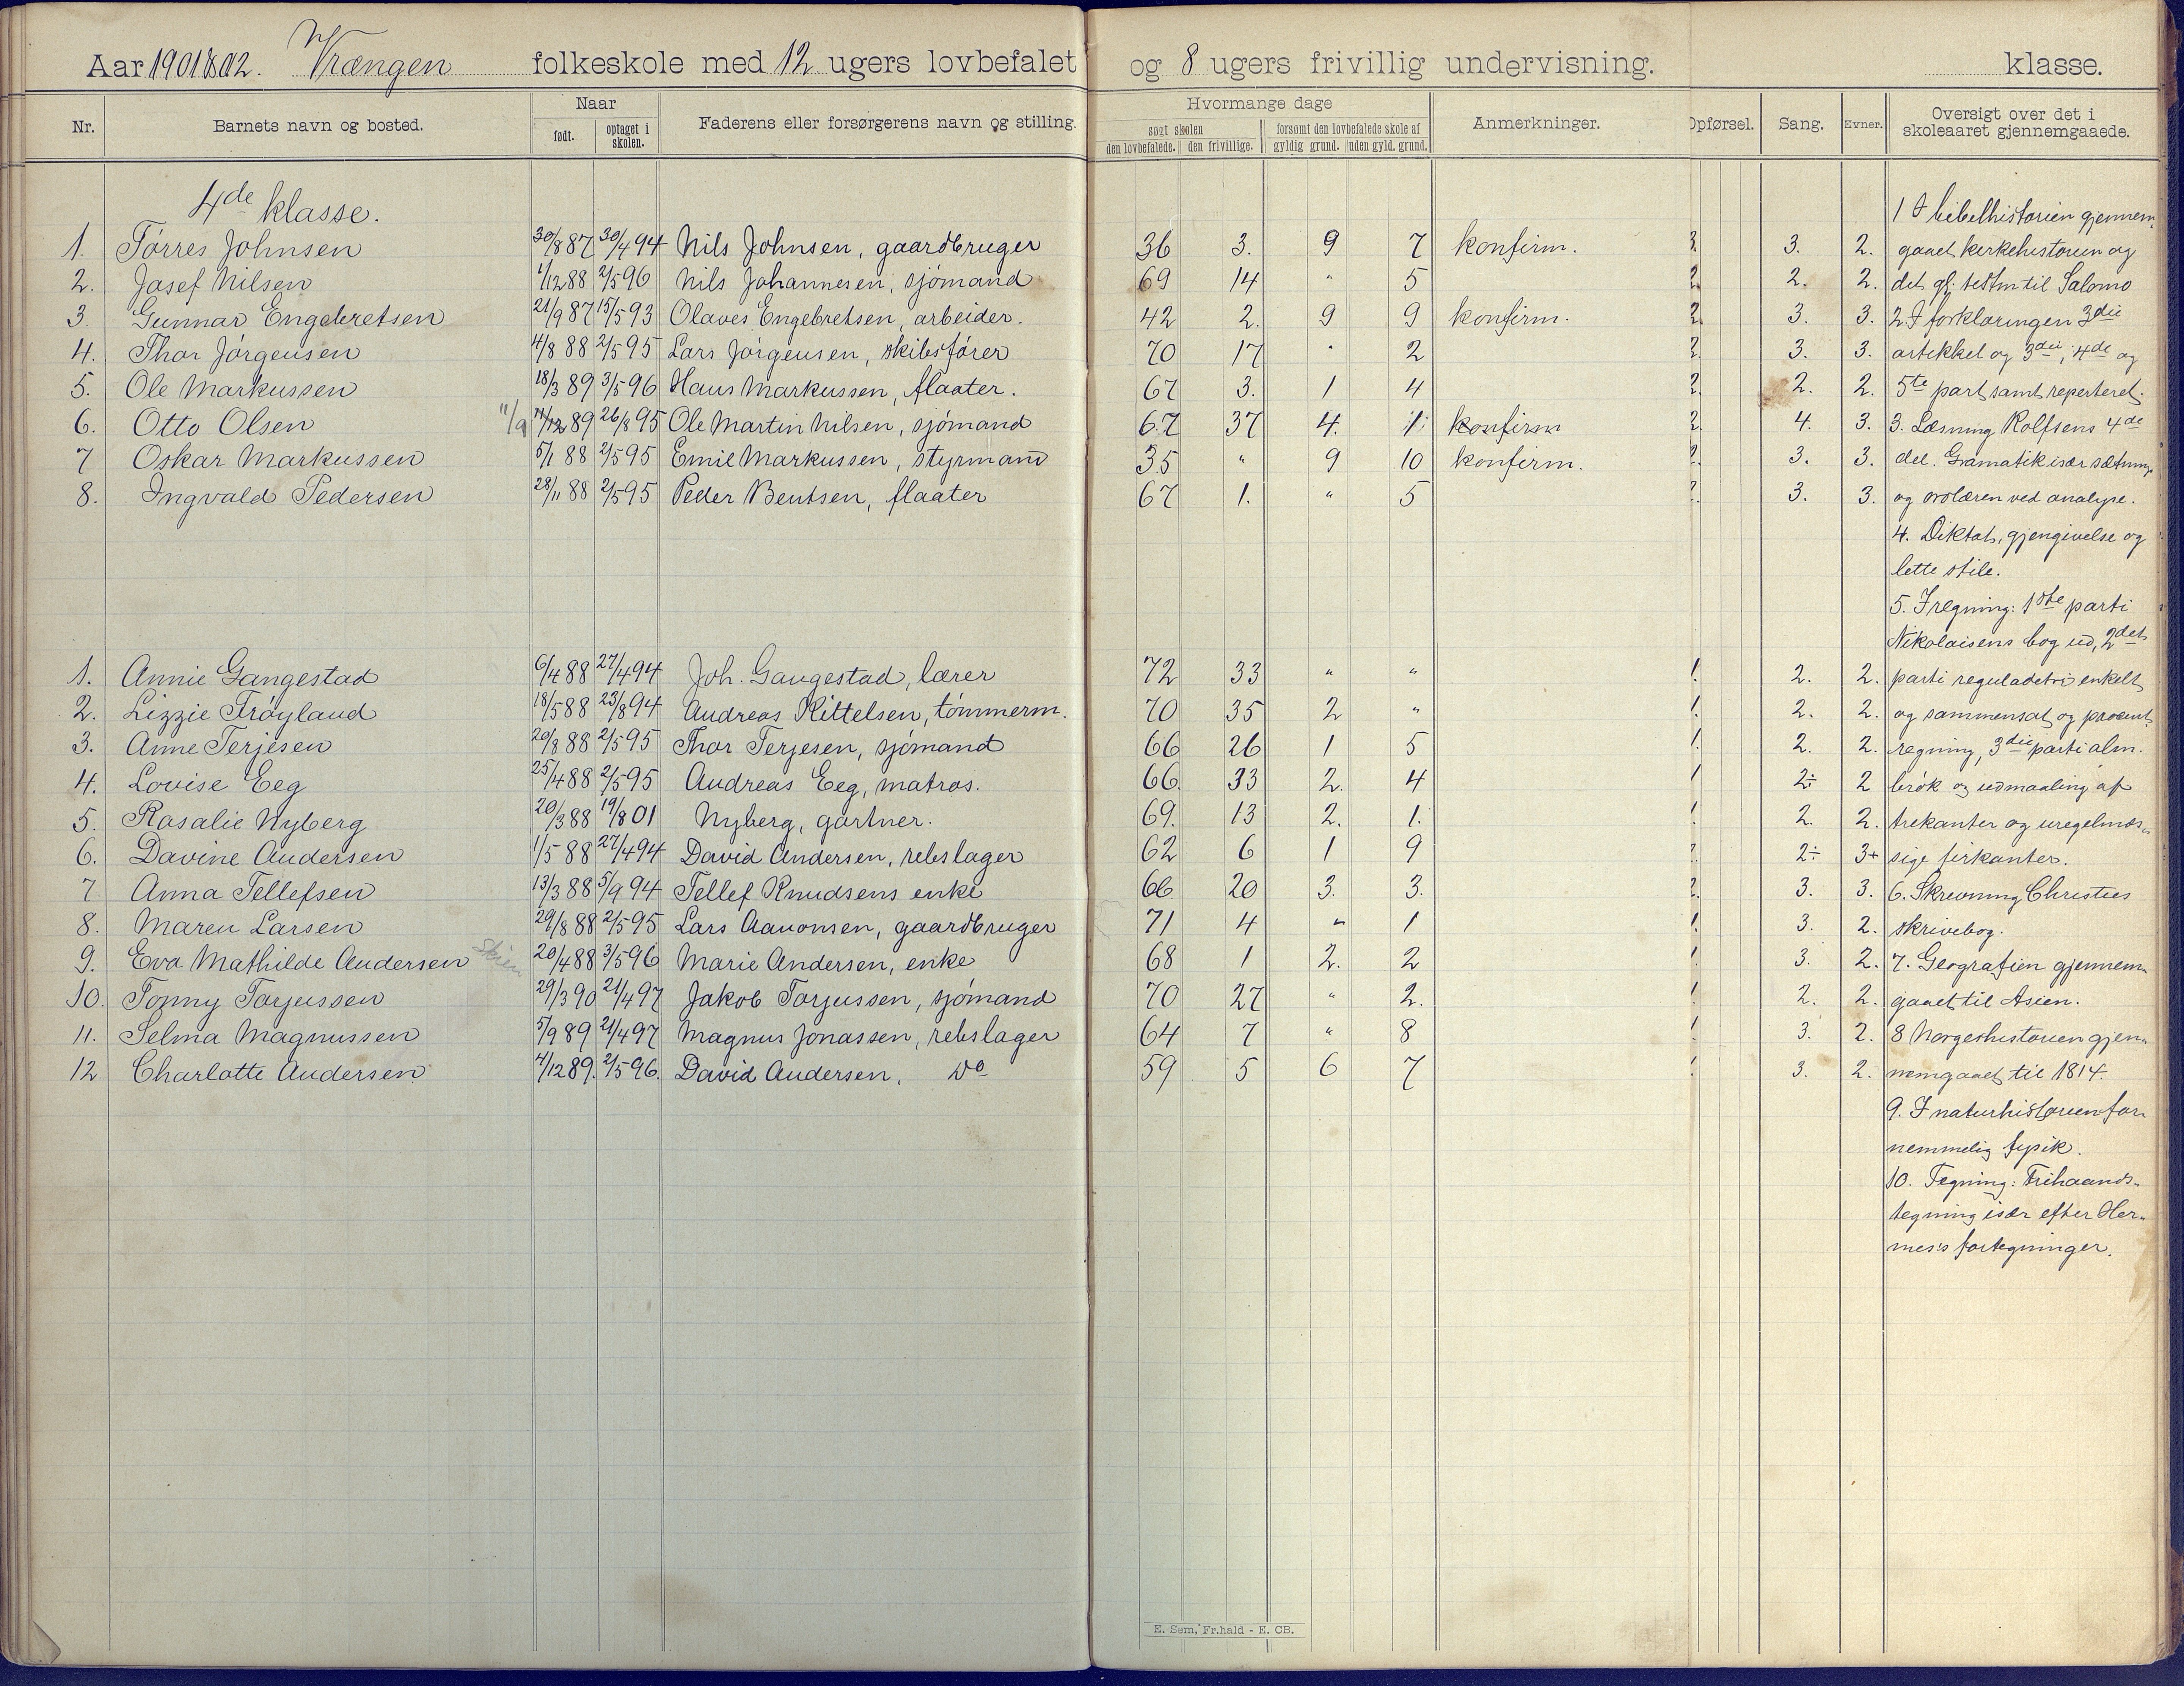 Aar 1901 & 02. Vrængen folkeskole med 12 ugers lovbefalet og 8 ugers frivillig undervisning. klasse.
Nr. Barnets navn og bosted. Naar født. optaget i skolen. Faderens eller forsørgerens navn og stilling. Hvormange dage søgt skolen den lovbefalede. den frivillige. forsømt den lovbefalede skole af gyldig grund. uden gyld. grund. Anmerkninger. Opførsel. Sang. Evner. Oversigt over det i skoleaaret gjennemgaaede.
4de klasse. 1 I bibelhistorien gjennem-
1. Törres Johnsen 30/8 87 30/4 94 Nils Johnsen, gaardbruger 36 3. 9 7 konfirm. 2. 3. 2. gaaet kirkehistorien og
2. Josef Nilsen 1/12 88 2/5 96 Nils Johannesen, sjömand 69 14 " 5 2. 2. 2. det gl. testm til Salomo
3. Gunnar Engebretsen 21/9 87 15/5 93 Olaves Engebretsen, arbeider. 42 2. 9 9 konfirm. 2. 3. 3. 2. I forklaringen 3die
4. Thor Jörgensen 4/8 88 2/5 95 Lars Jörgensen, skibsförer 70 17 " 2 2. 3. 3. artikkel og 3die, 4de og
5. Ole Markussen 18/3 89 3/5 96 Hans Markussen, flaater. 67 3. 1 4 2. 2. 2. 5te part samt reperteret.
6. Otto Olsen 11/9 11/12 89 26/8 95 Ole Martin Nilsen, sjömand 67 37 4. 1. konfirm 2. 4. 3. 3. Læsning Rolfsens 4de
7 Oskar Markussen 5/1 88 2/5 95 Emil Markussen, styrmand 35 " 9 10 konfirm. 2. 3. 3. del. Gramatik især sætnings
8. Ingvald Pedersen 28/11 88 2/5 95 Peder Bentsen, flaater 67 1. " 5 2. 3. 3. og ordlæren ved analyse.
4. Diktat, gjengivelse og
lette stile.
5. I regning: 1ste parti
Nikolaisens bog ud, 2det
1. Annie Gangestad 6/4 88 27/4 94 Joh. Gangestad, lærer 72 33 " " 1. 2. 2. parti reguladetri enkelt
2. Lizzie Tröyland 18/5 88 23/8 94 Andreas Kittelsen, tömmerm. 70 35 2 " 1. 2. 2. og sammensat og procent-
3. Anne Terjesen 20/8 88 2/5 95 Thor Terjesen, sjömand 66 26 1 5 1. 2. 2. regning, 3die parti alm.
4. Lovise Eeg 25/4 88 2/5 95 Andreas Eeg, matros. 66. 33 2. 4 1 2÷ 2 brök og udmaaling af
5. Rosalie Nyberg 20/3 88 19/8 01 Nyberg, gartner. 69. 13 2. 1. 1. 2. 2. trekanter og uregelmæs-
6. Davine Andersen 1/5 88 27/4 94 David Andersen, rebslager 62 6 1 9 2. 2÷ 3+ sige firkanter.
7 Anna Tellefsen 13/3 88 5/9 94 Tellef Knudsens enke 66 20 3. 3. 2. 3. 3. 6. Skrivning Christies
8. Maren Larsen 29/8 88 2/5 95 Lars Aanonsen, gaardbruger 71 4 " 1 1. 3. 2. skrivebog.
9. Eva Mathilde Andersen 20/4 88 3/5 96 Marie Andersen, enke 68 1 2. 2 1. 3. 2. 7. Geografien gjennem-
10. Tonny Torjussen 29/3 90 21/4 97 Jakob Torjussen, sjömand 70 27 " 2. 1. 2. 2. gaaet til Asien.
11. Selma Magnussen 5/9 89 21/4 97 Magnus Jonassen, rebslager 64 7 " 8 1. 3. 2. 8 Norgeshistorien gjen-
12 Charlotte Andersen 4/12 89. 2/5 96. David Andersen, Do 59 5 6 7 1. 3. 2. nemgaaet til 1814.
9. I naturhistorien for-
nemmelig fysik.
10. Tegning: Frihaands-
tegning især efter Her-
mes's fortegninger.
E. Sem, Fr.hald - E. CB.